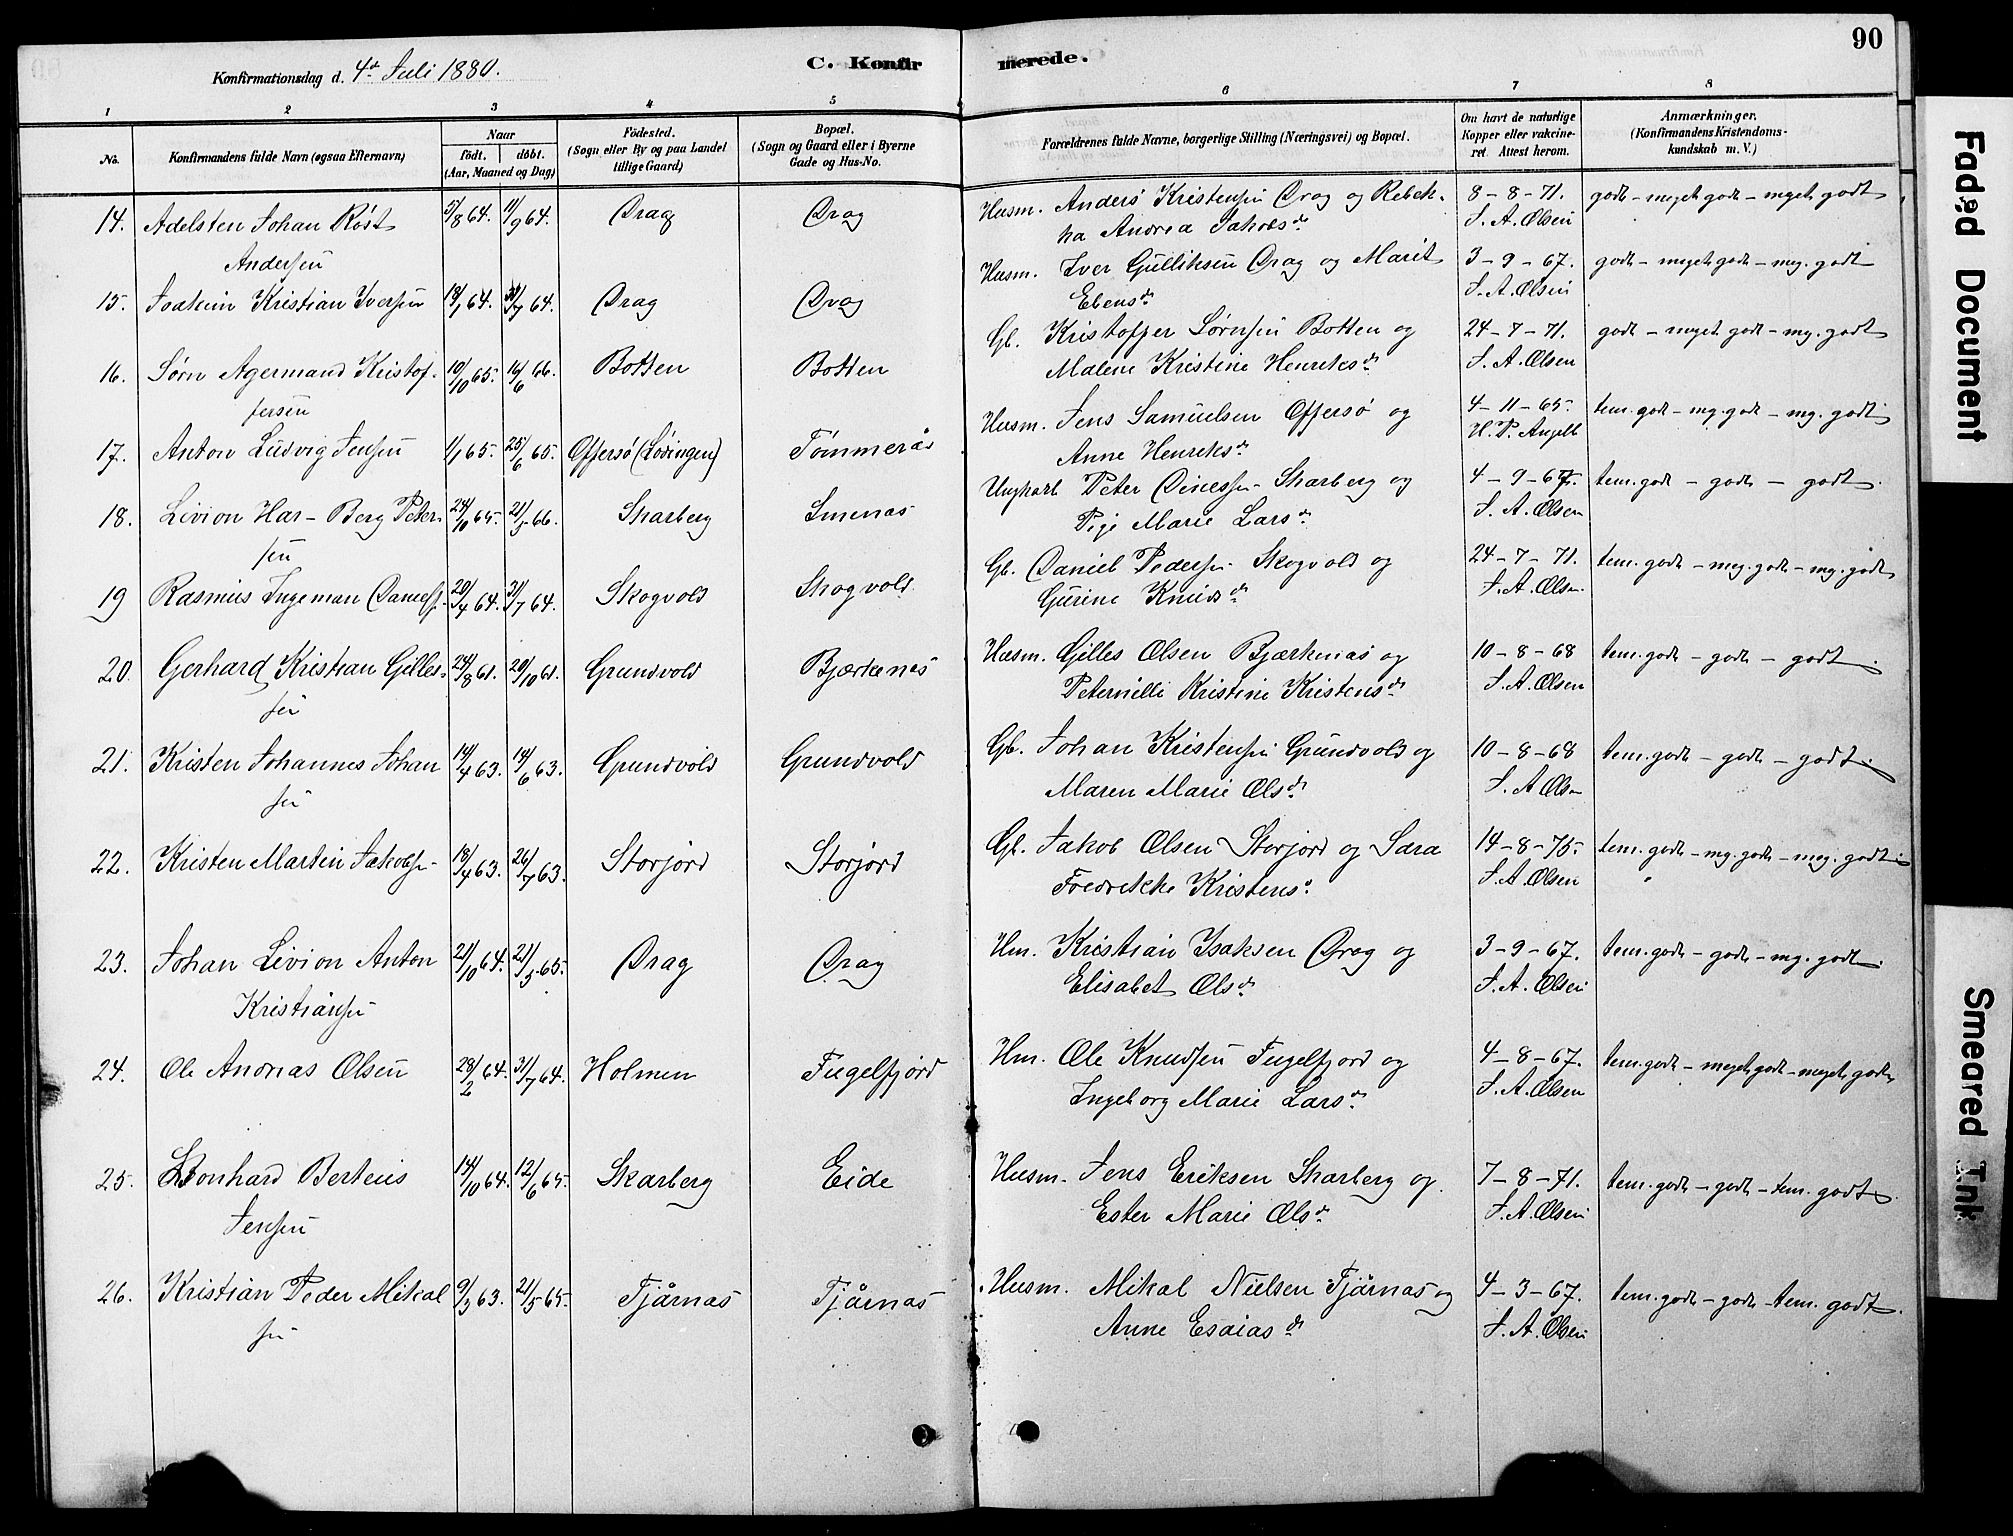 90
Konfirmationsdag d. 4de Juli 1880.
C. Konfirmerede.
1 2 3 4 5 6 7 8
No.
Konfirmandens fulde Navn (ogsaa Efternavn)
Naar
født. døbt.
(Aar, Maaned og Dag)
Fødested.
(Sogn eller By og paa Landet
tillige Gaard)
Bopæl.
(Sogn og Gaard eller i Byerne
Gade og Hus-No.
Forældrenes fulde Navne, borgerlige Stilling (Næringsvei) og Bopæl.
Om havt de naturlige
Kopper eller vakcine-
ret. Attest herom.
Anmærkninger.
(Konfirmandens Kristendoms-
kundskab m. V.)
14. Adelsten Johan Røst 5/8 64. 11/9 64. Drag Drag Husm. Anders Kristensen Drag og Rebek- 8-8-71. godt - meget godt - meget godt
Andersen ka Andrea Jakobsd. J. A. Olsen
15. Joakim Kristian Iversen 18/1 64. 31/7 64. Drag Drag Husm. Iver Gulliksen Drag og Marit 3-9-67. godt - meget godt - meg. godt
Ebensd. J. A. Olsen
16. Sørn Agermand Kristof- 10/10 65. 16/6 66. Botten Botten Gb. Kristoffer Sørnsen Botten og 24-7-71. godt - meget godt - mg. godt
fersen Malene Kristine Henriksd. J. A. Olsen
17. Anton Ludvig Jensen 1/1 65. 25/6 65. Offersø (Lødingen) Tømmerås Husm. Jens Samuelsen Offersø og 4-11-65. tem. godt - mg. godt - mg. godt
Anne Henriksd. H. P. Angell
18. Livion Har-Berg Peter- 24/10 65. 21/5 66. Skarberg Smenas Ungkarl Peter Dinessen Skarberg og 4-9-67. tem. godt - godt - godt.
sen Pige Marie Larsd. J. A. Olsen
19 Rasmus Ingeman Danielss. 20/4 64. 31/7 64. Skogvold Skogvold. Gb. Daniel Pedersen Skogvold og 24-7-71. tem. godt - meg. godt - mg. godt
Gurine Knudsd. J. A. Olsen.
20. Gerhard Kristian Gilles- 24/8 61. 20/10 61. Grundvold Bjærkenas Husm. Gilles Olsen Bjærkenas og 10-8-68 tem. godt - godt - godt.
sen Peternille Kristine Kristensd. J. A. Olsen
21. Kristen Johannes Johan 14/4 63. 14/6 63. Grundvold Grundvold Gb. Johan Kristensen Grundvold og 10-8-68 tem. godt - godt - godt.
sen Maren Marie Olsd. J. A. Olsen
22. Kristen Martin Jakobsen 18/4 63. 26/7 63. Storjord Storjord Gb. Jakob Olsen Storjord og Sara 14-8-75. tem. godt - mg. godt - meg. godt.
Fredrikke Kristens. J. A. Olsen
23. Johan Livion Anton 21/10 64. 21/5 65. Drag Drag Hm. Kristian Isaksen Drag og 3-9-67. tem. godt - godt - mg. godt.
Kristiansen Elisabet Olsd. J. A. Olsen
24. Ole Andreas Olsen 28/2 64. 31/7 64. Holmen Fugelfjord Hm. Ole Knudsen Fugelfjord og 4-8-67. tem. godt - meget godt - meget godt
Ingeborg Marie Larsd. J. A. Olsen
25. Leonhard Berteus 14/10 64. 12/6 65. Skarberg Eide Husm. Jens Eriksen Skarberg og 7-8-71. tem. godt - godt - tem. godt.
Jensen Ester Marie Olsd. J. A. Olsen
26. Kristian Peder Mikal 9/3 63. 21/5 65. Tjårnas Tjårnas Husm. Mikal Nielsen Tjårnas og 4-3-67. tem. godt - godt - tem. godt.
sen Anne Esaiasd. J. A. Olsen
Faded Document
Smeared Ink